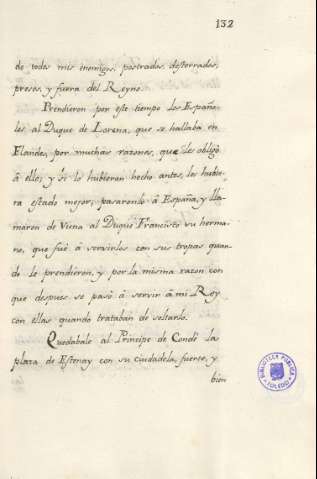 132
de todos mis enemigos, postrados, desterrados,
presos, y fuera del Reyno.
Prendieron por este tiempo los Españo-
les, al Duque de Lorena, que se hallaba en
Flandes, por muchas razones, que les obligó
á ello; y si lo hubieron hecho antes, les hubie-
ra estado mejor; pasaronlo á España, y lla-
maron de Viena al Duque Francisco su herma-
no, que fué á servirlos con sus tropas quan-
do le prendieron, y por la misma razon con
que despues se pasó á servir á mi Rey
con ellas quando trataban de soltarlo.
Quedabale al Principe de Condé la
plaza de Estenay con su ciudadela, fuerte, y
bien
BIBLIOTECA PUBLICA
TOLEDO